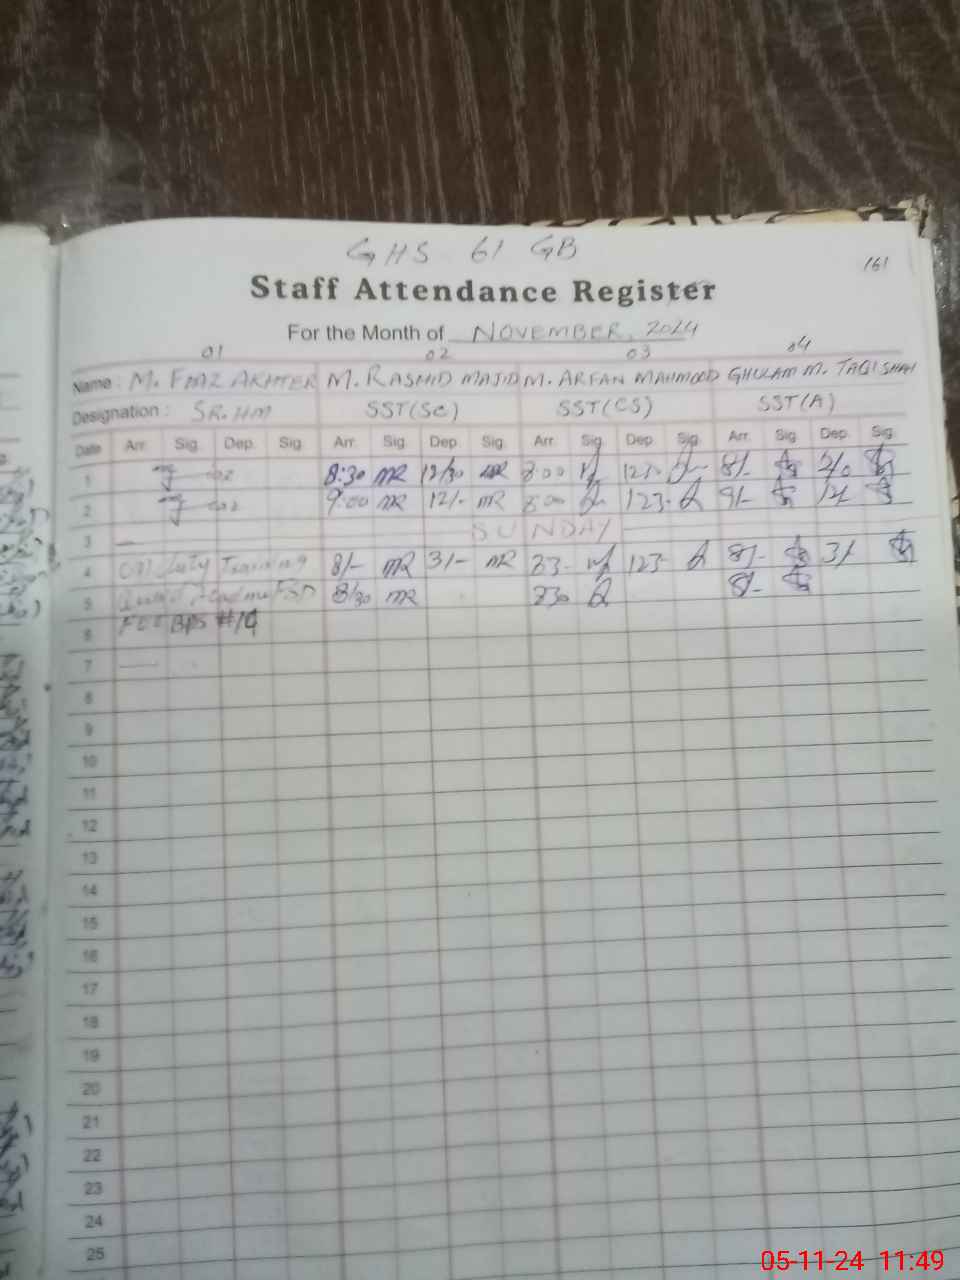 GHS 61 GB
161
Staff Attendance Register
For the Month of NOVEMBER, 2024
01 02 03 04
Name: M. FIAZ AKHTER M. RASHID MAJID M. ARFAN MAHMOOD GHULAM M. TAQI SHAH
Designation: SR. HM SST(SC) SST(CS) SST(A)
Date Arr. Sig. Dep. Sig. Arr. Sig. Dep. Sig. Arr. Sig. Dep. Sig. Arr. Sig. Dep. Sig.
1 8:30 MR 12/30 MR 8:00 123- 8/-
2 9:00 MR 12/- MR 8:00 123- 8/- 12/
3 SUNDAY
4 On Duty Training 8/- MR 3/- MR 123- 8/- 3/
5 FSD 8/30 MR 830 8/-
6 BPS #
7
8
9
10
11
12
13
14
15
16
17
18
19
20
21
22
23
24
25
05-11-24 11:49